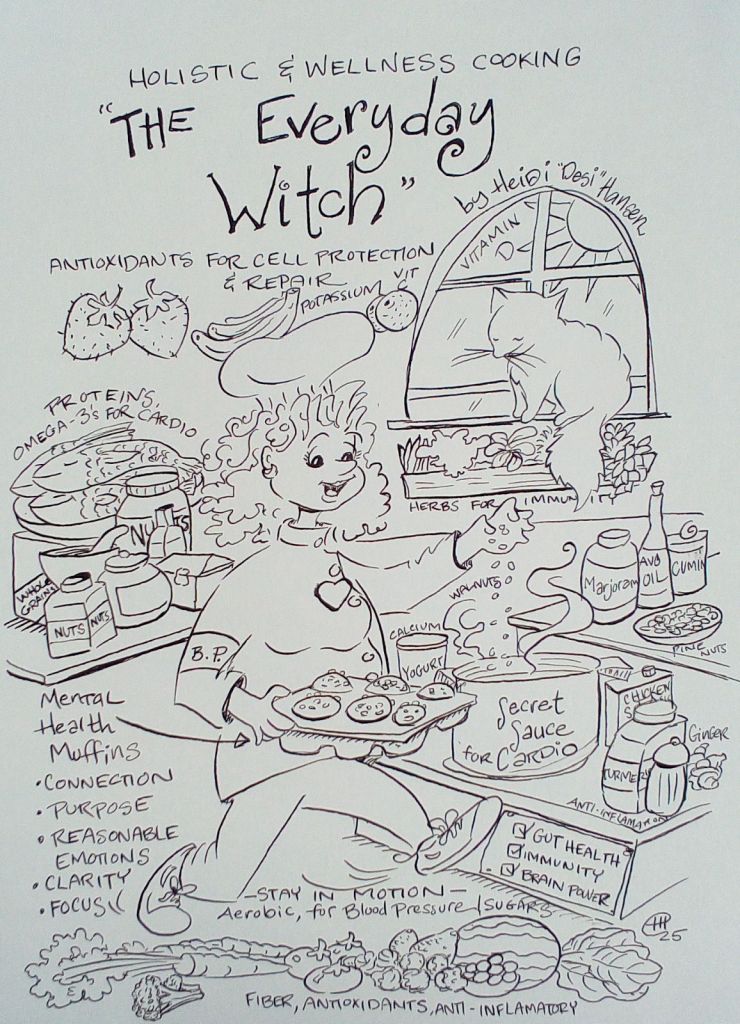 HOLISTIC & WELLNESS COOKING
"THE Everyday
Witch"
by Heidi "Desi" Hansen
VITAMIN
D
ANTIOXIDANTS FOR CELL PROTECTION
& REPAIR
POTASSIUM
VIT
C
PROTEINS,
OMEGA-3'S FOR CARDIO
NUTS
WHOLE
GRAINS
NUTS
NUTS
HERBS FOR IMMUNITY
WALNUTS
Marjoram
AVO
OIL
CUMIN
PINE
NUTS
B.P.
CALCIUM
YOGURT
Secret
Sauce
for CARDIO
CHICKEN
Ginger
TURMERIC
ANTI-INFLAMATORY
Mental
Health
Muffins
• CONNECTION
• PURPOSE
• REASONABLE
EMOTIONS
• CLARITY
• FOCUS
GUT HEALTH
IMMUNITY
BRAIN POWER
—STAY IN MOTION—
Aerobic, for Blood Pressure/SUGARS
25
FIBER, ANTIOXIDANTS, ANTI-INFLAMATORY